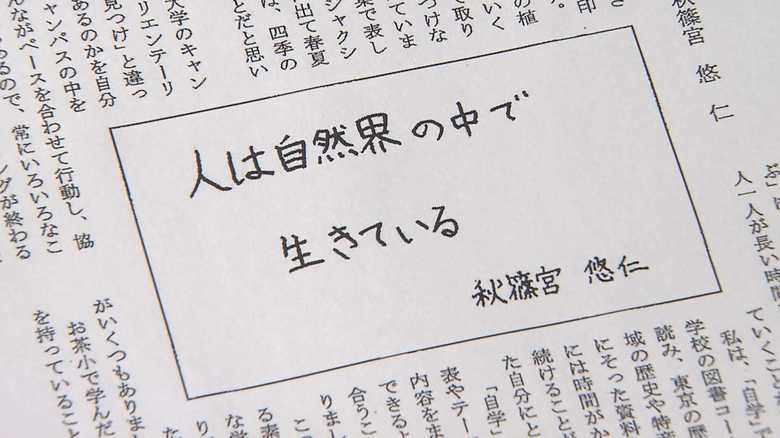 秋篠宮 悠仁
の植
いく
で取り
つけな
ていま
で表し
ジャクシ
出て春夏
は、四季の
とだと思い
大学のキャン
リエンテーリ
見つけ」と違っ
あるのかを自分
ャンパスの中を
んながペースを合わせて行動し、協
るので、常にいろいろなこ
ングが終わる
人は自然界の中で
生きている
秋篠宮 悠仁
人一人が長い時間
ていくこ
私は、「自学」で
学校の図書コー
読み、東京の歴
域の歴史や特
にそった資料
には時間がか
続けることが
た自分にと
「自学
表やテー
内容をま
できるよ
合うこ
りまし
る素
な学
がいくつもありま
お茶小で学んだ
を持っていること